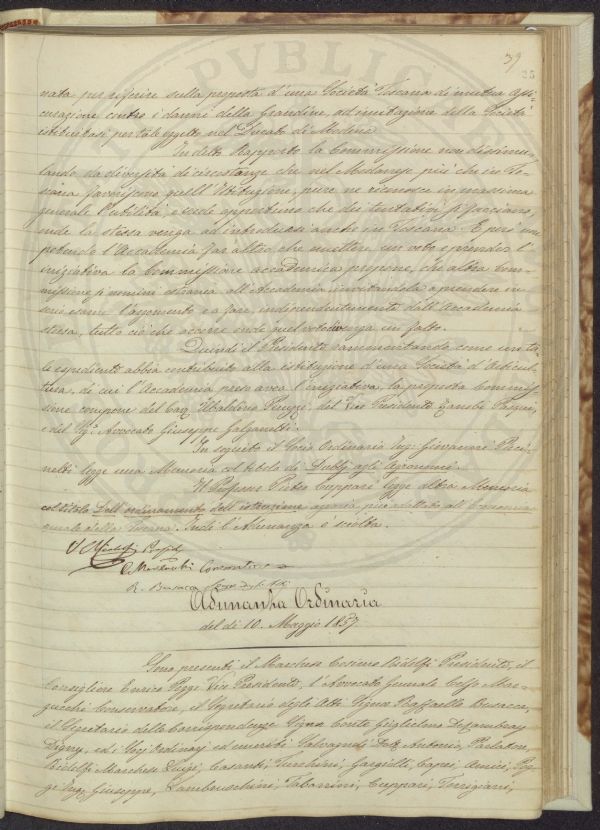 39
35
nata per riferire sulla proposta d'una Società Toscana di mutua Assi-
curazione contro i danni della Grandine, ad imitazione della Società
istituitasi per tale oggetto nel Ducato di Modena.
In detto Rapporto la Commissione non dissimu-
lando la diversità di circostanze che nel Modanese, più che in To-
scana favoriscono quell'Istituzione, pure ne riconosce in massima
generale l'utilità, e crede opportuno che dei tentativi si facciano,
onde la stessa venga ad introdursi anche in Toscana. E però non
potendo l'Accademia far altro che emettere un voto e prender l'
iniziativa la Commissione accademica propone, che altra Com-
missione si nomini estranea all'Accademia invitandola a prendere in
esame l'argomento e a fare, indipendentemente dall'Accademia
stessa, tutto ciò che occorre onde quel voto divenga un fatto.
Quindi il Presidente rammentando come un ta-
le espediente abbia contribuito alla istituzione d'una Società d'Orticul-
tura, di cui l'Accademia prese avea l'iniziativa, la proposta Commis-
sione compone del Cav. Ubaldino Peruzzi, del Vice Presidente Zanobi Pasqui,
e del Sig. Avvocato Giuseppe Galganetti.
In seguito il Socio Ordinario Ing. Giovanni Pari-
nelli legge una Memoria col titolo di Dubbj agli Agronomi.
Il Professor Pietro Cuppari legge altra Memoria
col titolo Dell'ordinamento dell'istruzione agraria, più adattato all'
della Toscana. Indi l'Adunanza è sciolta.
C. Ridolfi Presid.
C. Marzucchi Conservatore
R. Busacca Segr. degli Atti
Adunanza Ordinaria
del dì 10. Maggio 1857.
Sono presenti il Marchese Cosimo Ridolfi Presidente, il
Consigliere Enrico Poggi Vice Presidente, l'Avvocato Generale Celso Mar-
zucchi Conservatore, il Segretario degli Atti Signor Raffaello Busacca,
il Segretario delle Corrispondenze Signor Conte Guglielmo De Cambray
Digny, ed i Socj Ordinarj ed emeriti Salvagnoli Dott. Antonio, Parlatore,
Ridolfi Marchese Luigi, Casanti, Turchini, Gargiolli, Capei, Amici, Pog-
gi Ing. Giuseppe, Lambruschini, Tabarrini, Cuppari, Torrigiani,